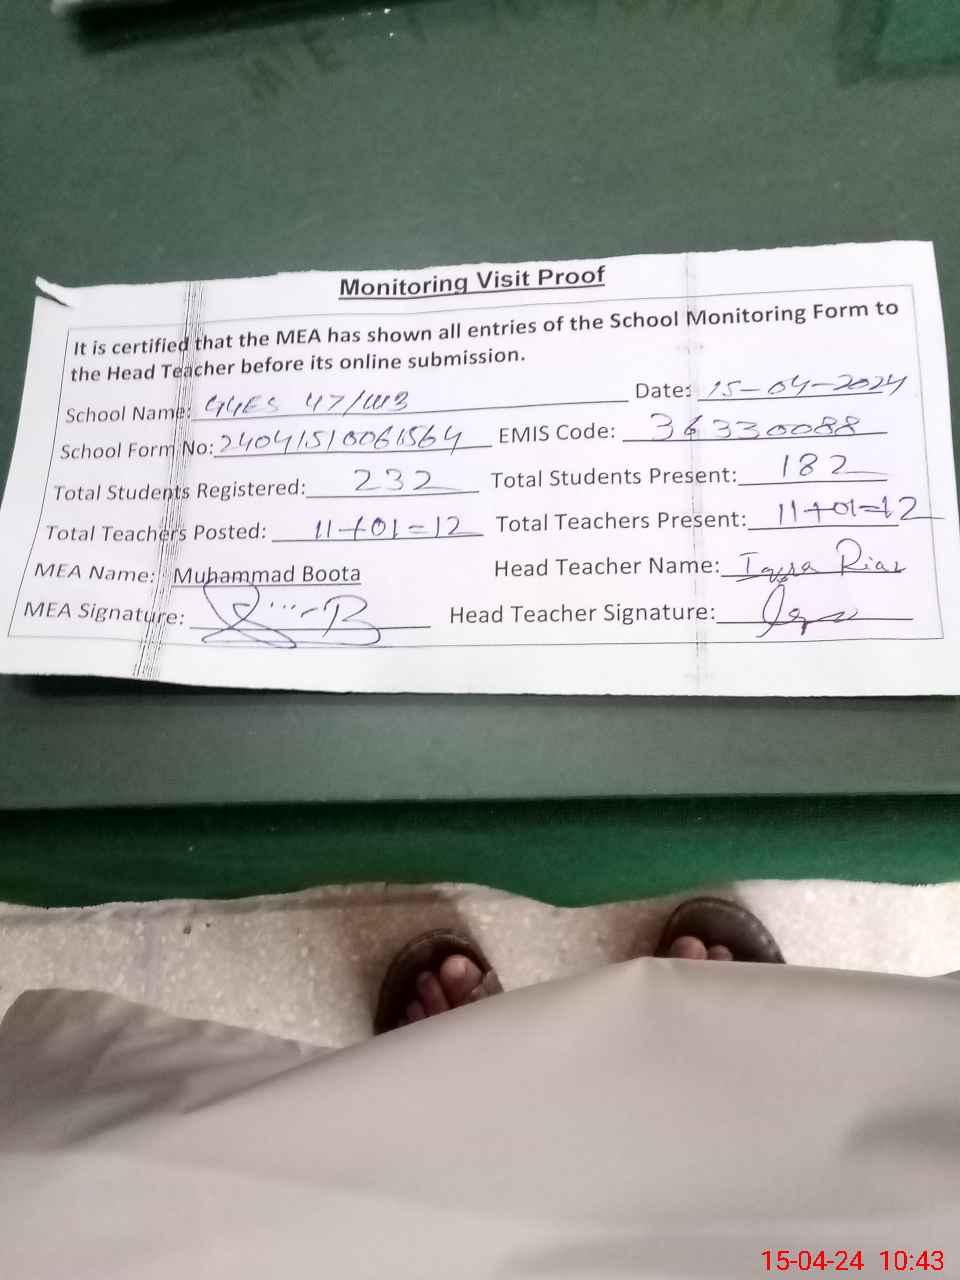 Monitoring Visit Proof
It is certified that the MEA has shown all entries of the School Monitoring Form to
the Head Teacher before its online submission.
School Name: GGES 47/WB Date: 15-04-2024
School Form No: 24041510061564 EMIS Code: 36330088
Total Students Registered: 232 Total Students Present: 182
Total Teachers Posted: 11+01=12 Total Teachers Present: 11+01=12
MEA Name: Muhammad Boota Head Teacher Name: Iqra Riaz
MEA Signature: Head Teacher Signature:
15-04-24 10:43